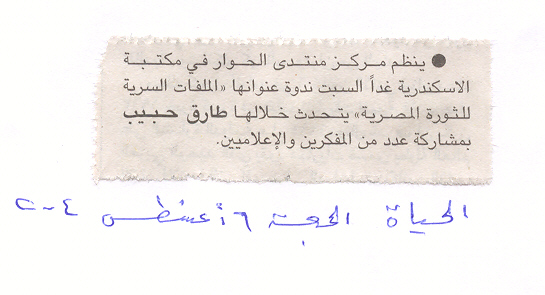 ● ينظم مركز منتدى الحوار في مكتبة
الاسكندرية غداً السبت ندوة عنوانها «الملفات السرية
للثورة المصرية» يتحدث خلالها طارق حبيب
بمشاركة عدد من المفكرين والإعلاميين.
الحياة الجمعة ٦ أغسطس ٢٠٠٤